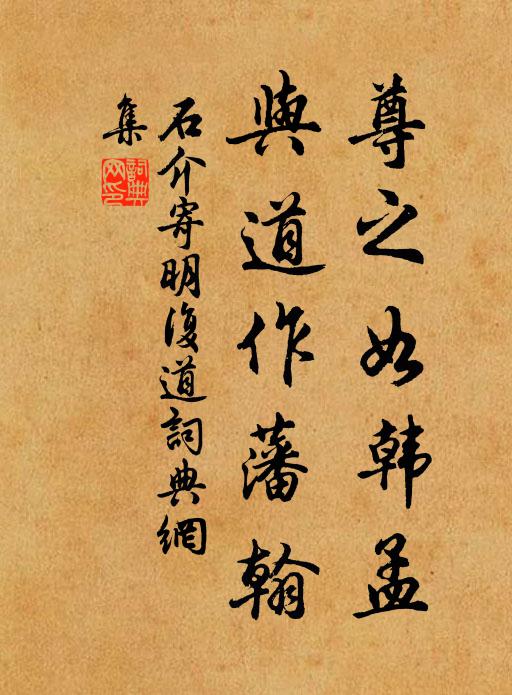 尊之如韩孟
與道作藩翰
石介寄明復道詞典網
集
詞典網印